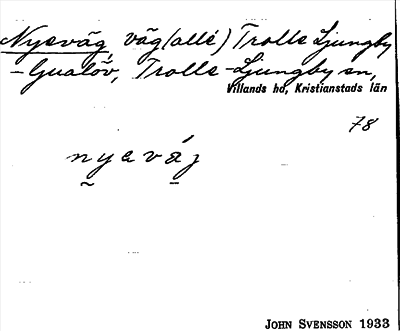 Nyeväg, väg (allé) Trolle Ljungby
– Gualöv, Trolle-Ljungby sn,
Villands hd, Kristianstads län
78
nyevág
JOHN SVENSSON 1933